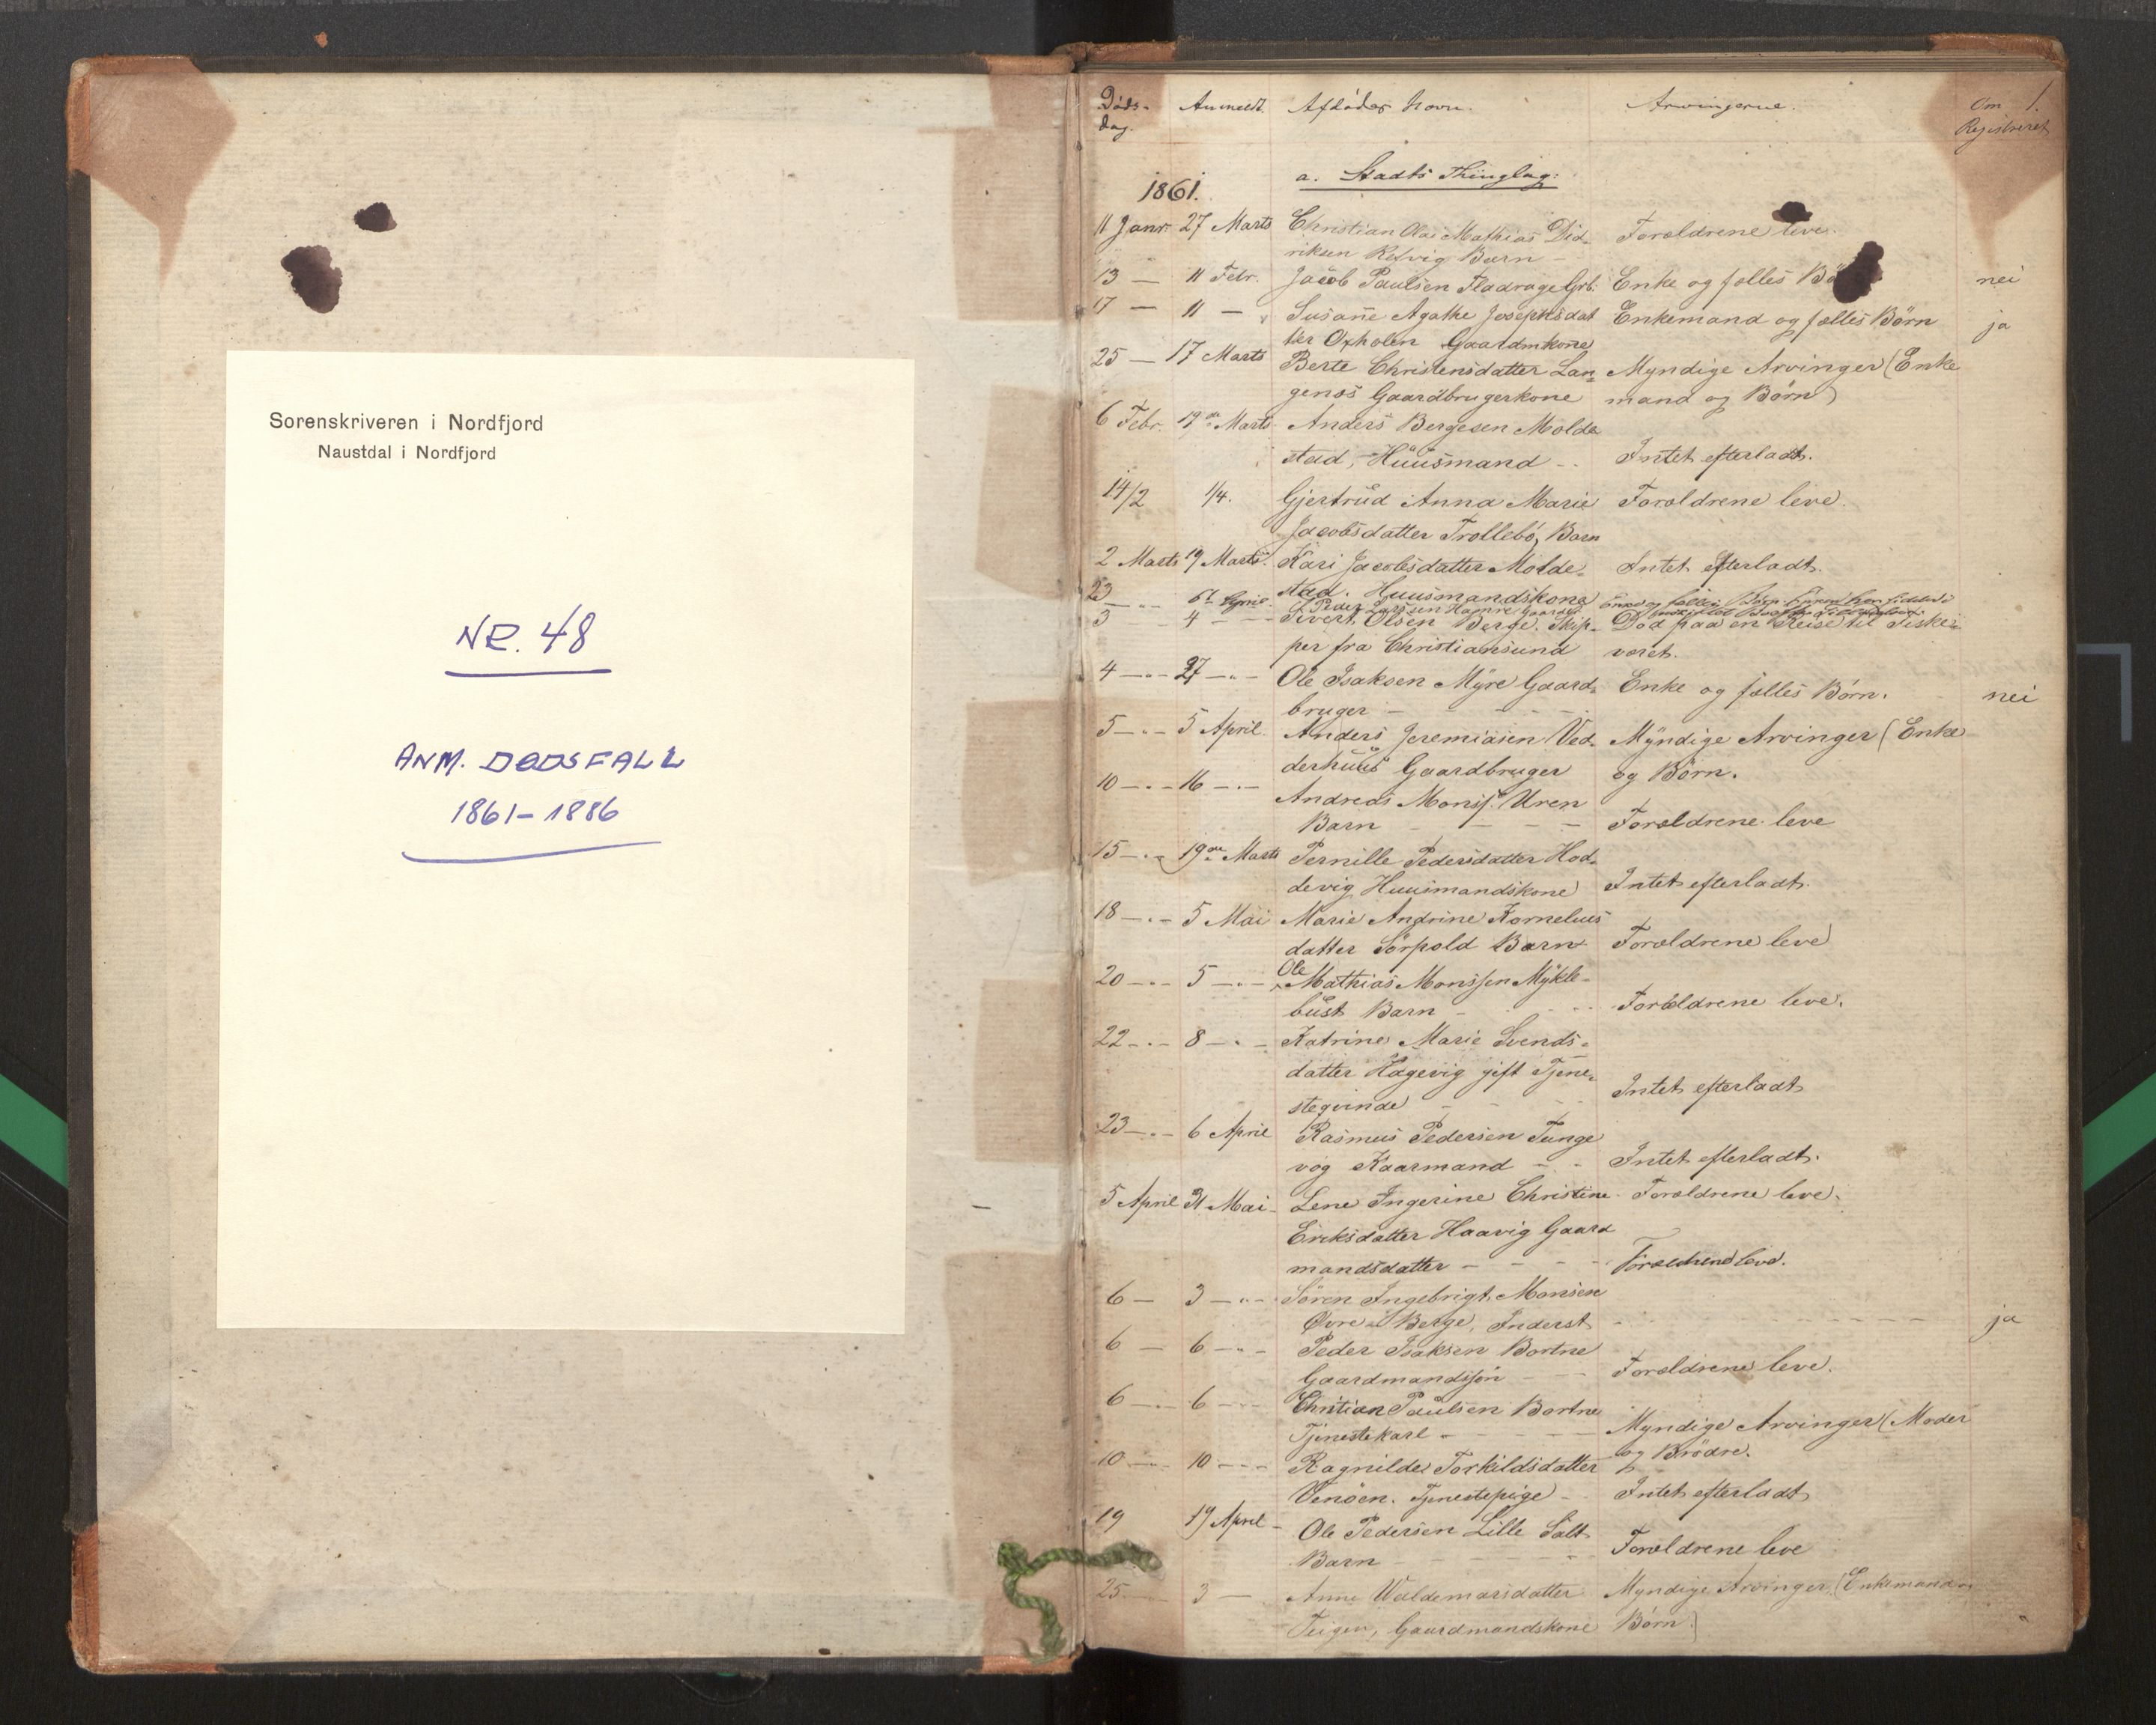 Sorenskriveren i Nordfjord
Naustdal i Nordfjord
NR. 48
ANM. DØDSFALL
1861-1886
Døds- Anmeldt. Afdødes Navn. Arvingerne. Om 1.
dag. Registreret
a. Stadts Thinglag:
1861.
11 Janr. 27 Marts Christian Olai Mathias Did- Forældrene leve.
riksen Refvig Barn
13 — 11 Febr. Jacob Paulsen Fladrage Grb. Enke og fælles nei
17 — 11 — Susane Agathe Josephsdat Enkemand og fælles Børn ja
ter Oxholen Gaardmkone
25 — 17 Marts Berte Christensdatter Lan- Myndige Arvinger (Enke
genæs Gaardbrugerkone mand og Børn)
6 Febr. 19de Marts Anders Børgesen Molde
stad, Huusmand Intet efterladt.
14/2 1/4. Gjertrud Anna Marie Forældrene leve.
Jacobsdatter Trollebø, Barn
2 Marts 19 Marts. Kari Jacobsdatter Molde- Intet efterladt.
stad. Huusmandskone
23 6t April. Peder Larssen Hamre Gaardbr. Enke og fælles Børn.
3 4 Sivert Olsen Berge. Skip- Død paa en Reise til Fiske-
per fra Christiansund været.
4 27 Ole Isaksen Myre Gaard- Enke og fælles Børn. nei
bruger
5 5 April. Anders Jeremiasen Ved- Myndige Arvinger (Enke
derhuus Gaardbruger og Børn.
10 16 Andreas Monss. Uren
Barn Forældrene leve
15 19de Marts Pernille Pedersdatter Hod-
devig Huusmandskone Intet efterladt.
18 5 Mai Marie Andrine Kornelius
datter Sørpold Barn Forældrene leve
20 5 Ole Mathias Monssen Mykle-
bust Barn Forældrene leve.
22 8 Katrine Marie Svends-
datter Hagevig gift Tjene-
steqvinde Intet efterladt
23 6 April Rasmus Pedersen Tunge
vog Kaarmand Intet efterladt.
5 April 31 Mai Lene Ingerine Christine Forældrene leve.
Eriksdatter Haavig Gaard
mandsdatter Forældrene leve.
6 — 3 Søren Ingebrigt Monsen
Øvre Berge, Inderst ja
6 — 6 Peder Isaksen Bortne
Gaardmandssøn Forældrene leve.
6 6 Christian Paulsen Bortne
Tjenestekarl Myndige Arvinger (Moder
og Brødre.
10 10 Ragnilde Torkildsdatter
Venøen. Tjenestepige Intet efterladt
19 19 April Ole Pedersen Lille Salt
Barn Forældrene leve
25 3 — Anne Waldemarsdatter Myndige Arvinger (Enkemand
Teigen, Gaardmandskone Børn)